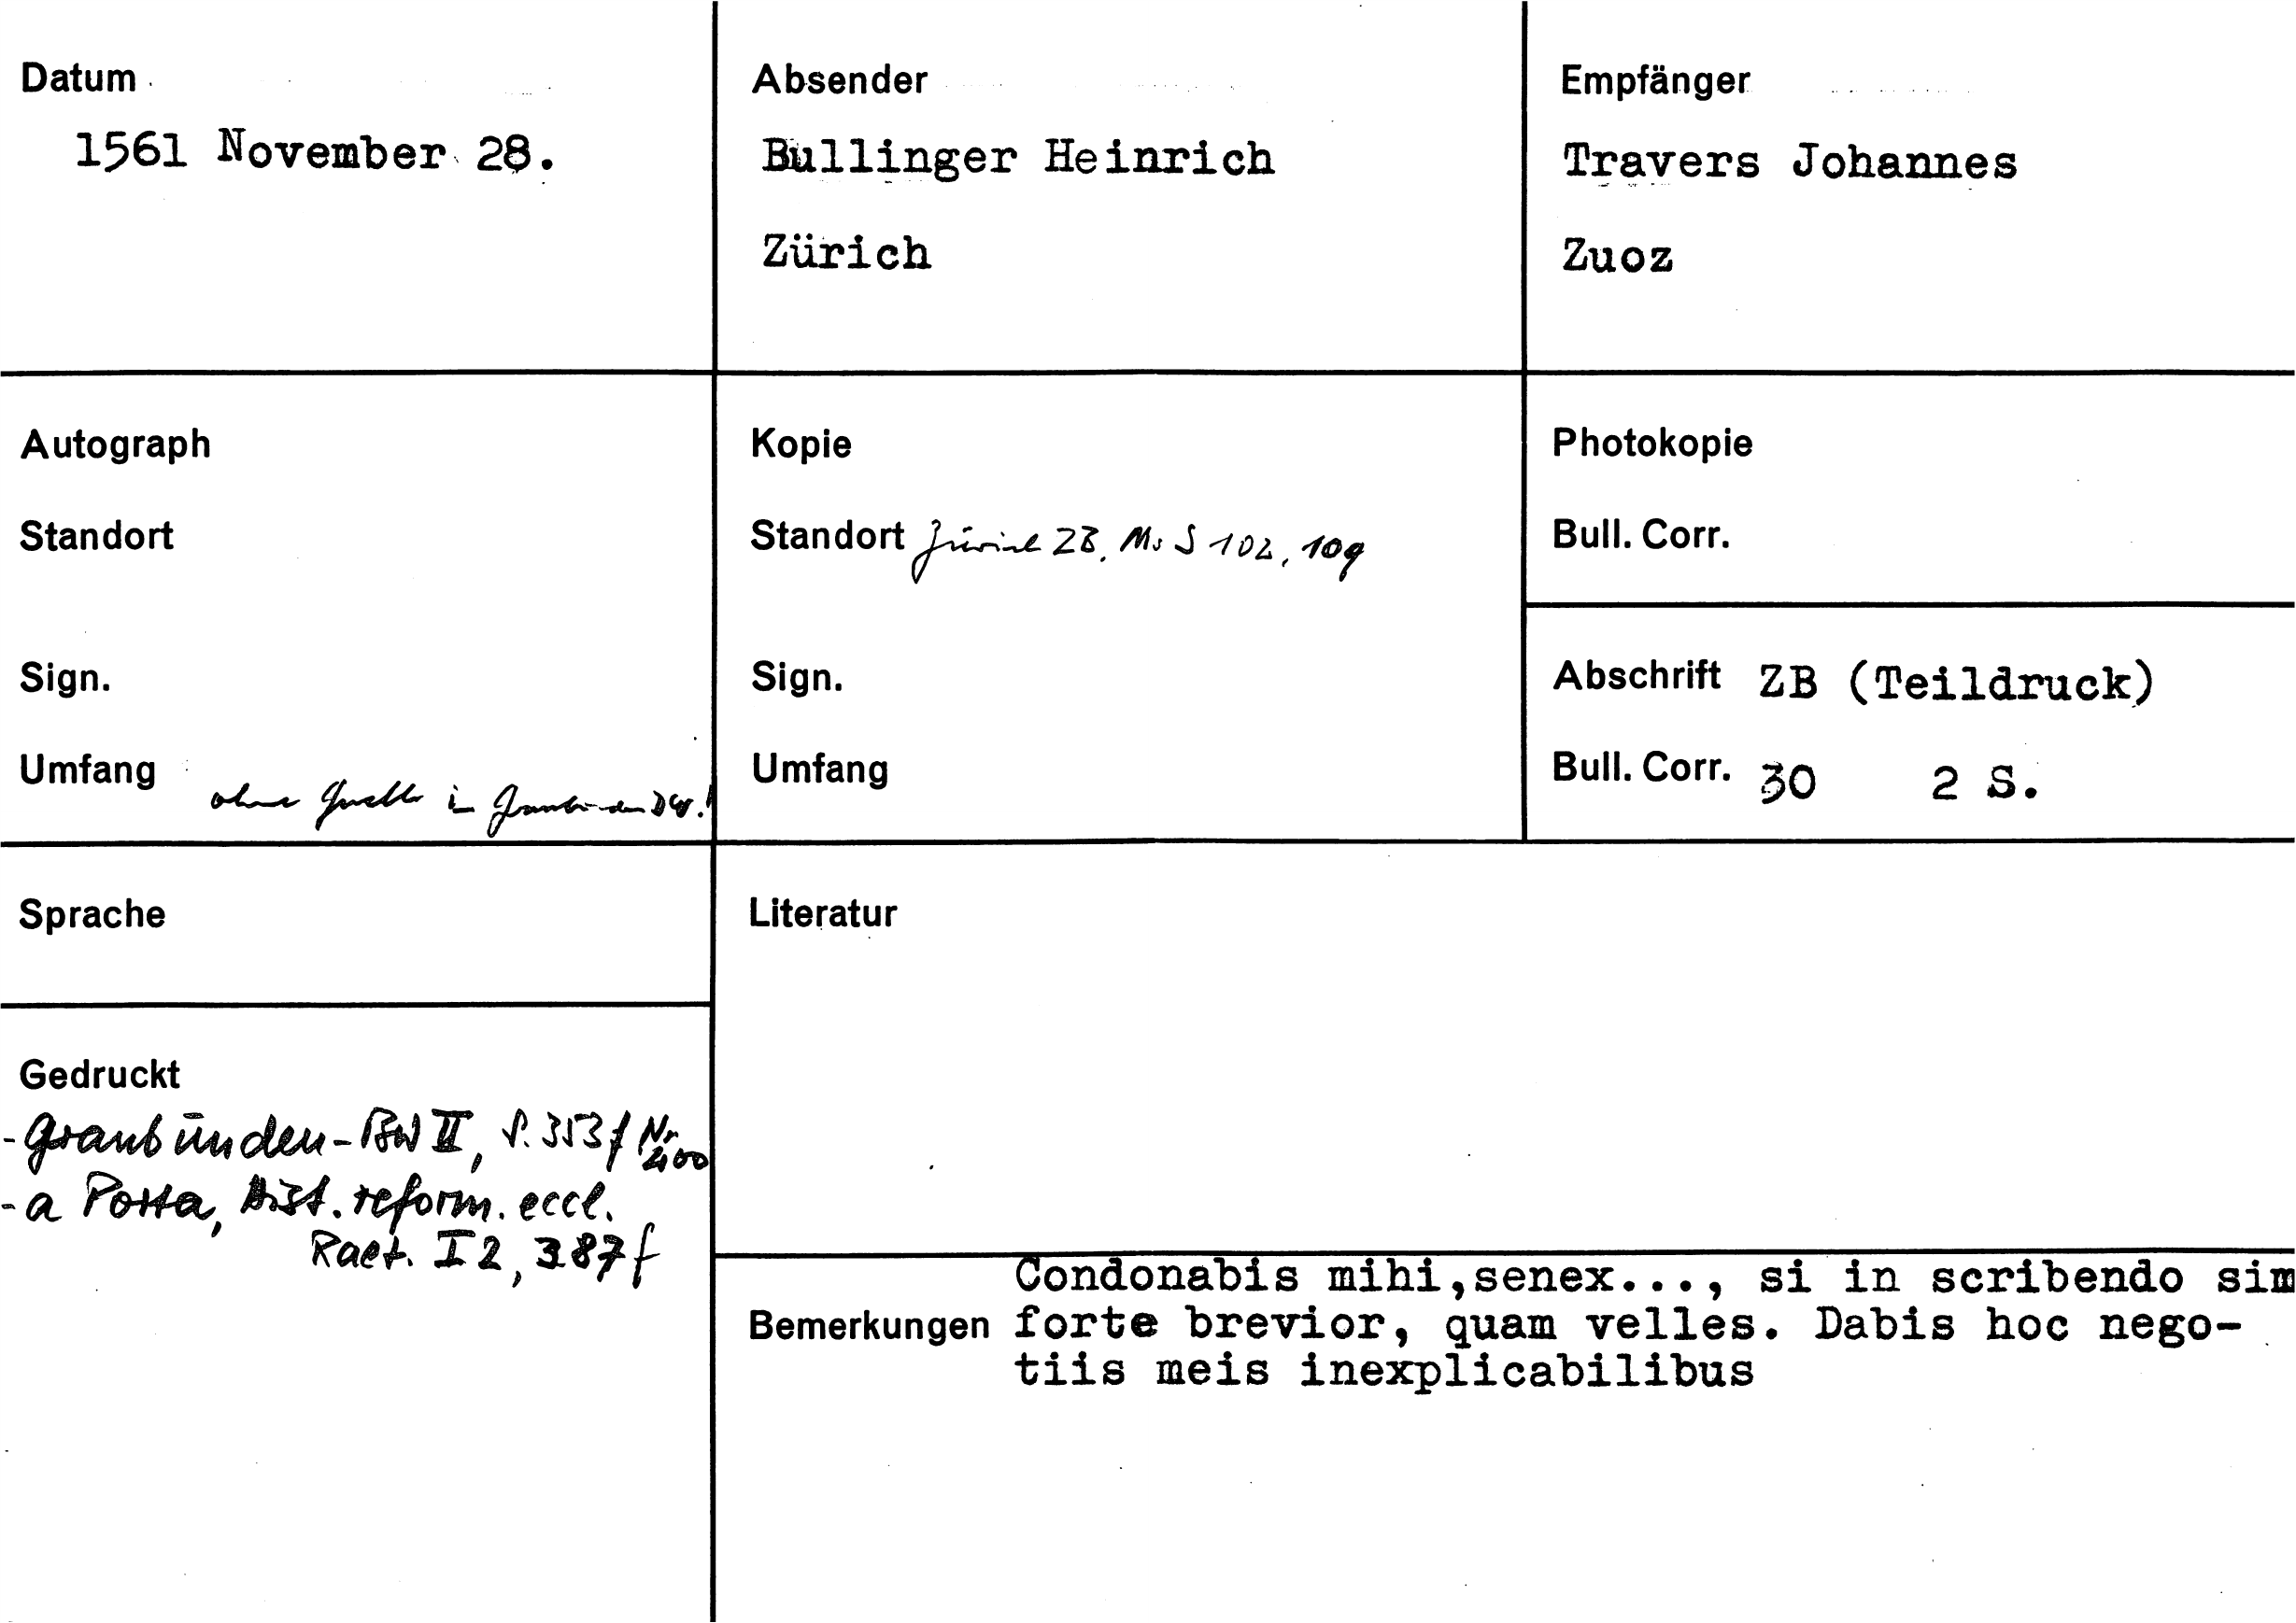 Datum
1561 November 28.
Absender
Bullinger Heinrich
Zürich
Empfänger
Travers Johannes
Zuoz
Autograph
Standort
Sign.
Umfang
ohne Quelle in Graubünden BW!
Kopie
Standort Zürich ZB, Ms S 102, 109
Sign.
Umfang
Photokopie
Bull. Corr.
Abschrift ZB (Teildruck)
Bull. Corr. 30 2 S.
Sprache
Gedruckt
- Graubünden-BW II, S. 353 f Nr. 400
- a Porta, Hist. reform. eccl.
Raet. I 2, 387 f
Literatur
Bemerkungen
Condonabis mihi,senex..., si in scribendo sim
forte brevior, quam velles. Dabis hoc nego-
tiis meis inexplicabilibus